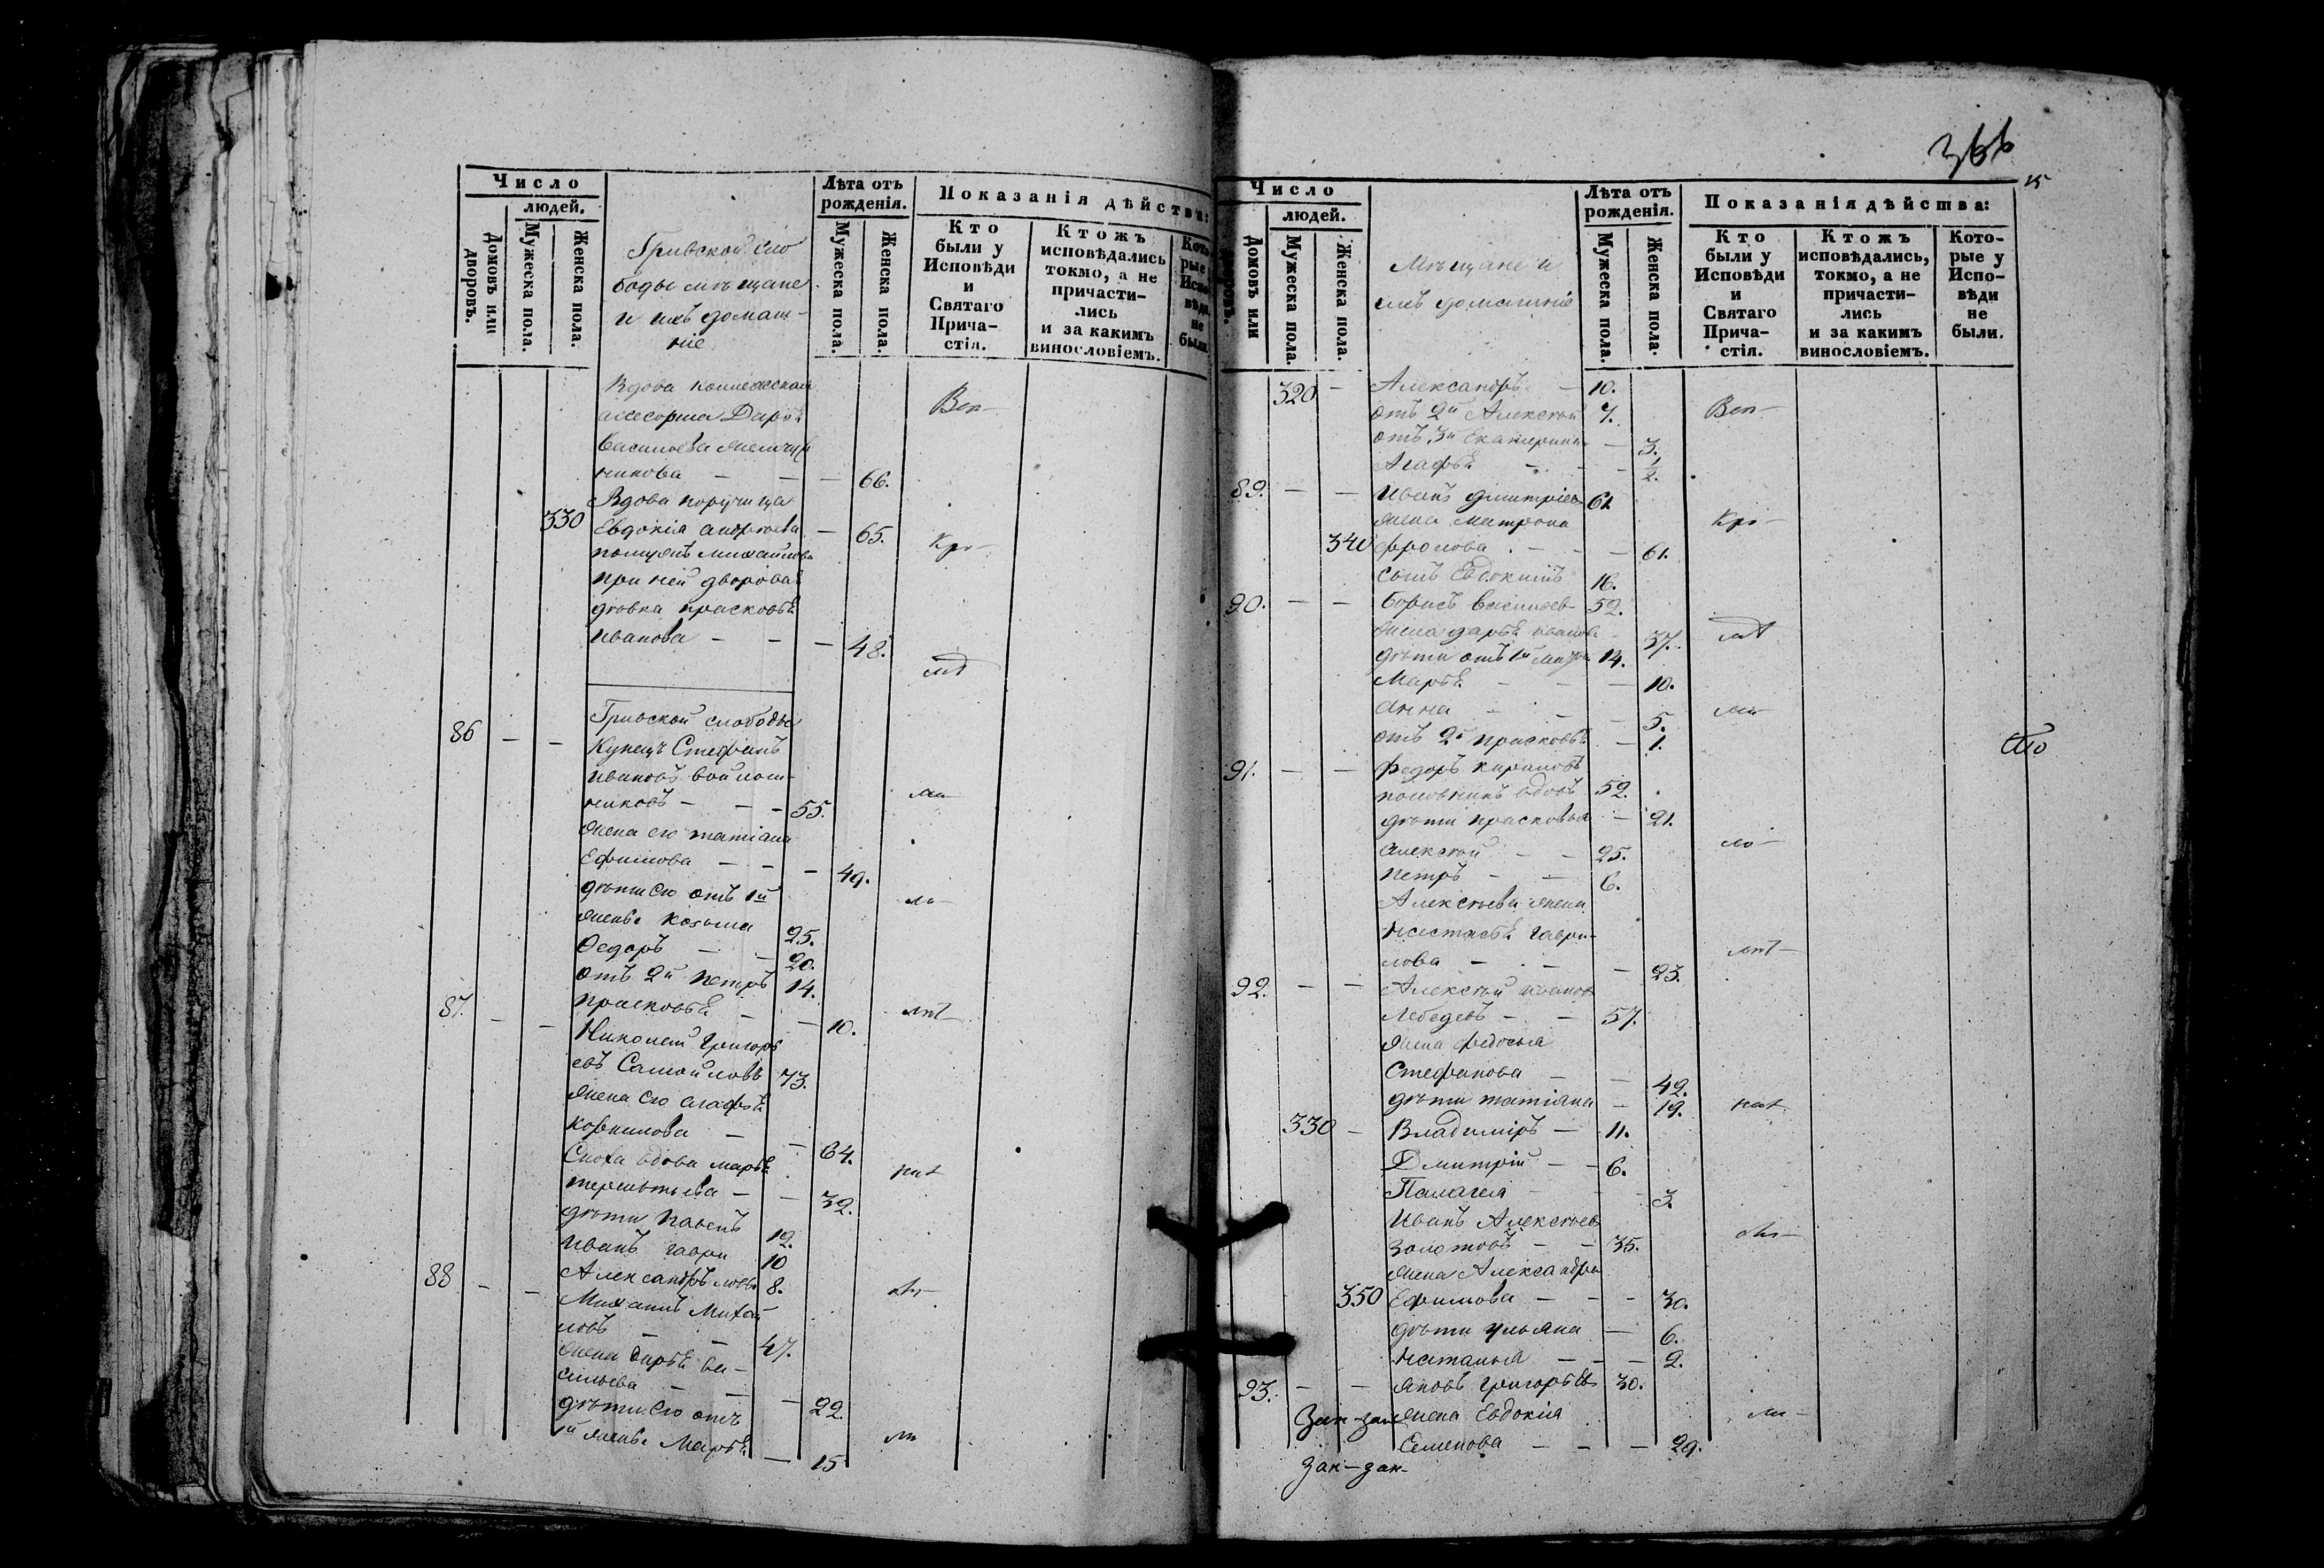 Число
людей.
Домовъ или дворовъ.
Мужеска пола.
Женска пола.
Гривской сло
боды мѣщане
и ихъ домаш-
ніе
Лѣта отъ
рожденія.
Мужеска пола.
Женска пола.
Показанія дѣйства:
Кто
были у
Исповѣди
и
Святаго
Прича-
стія.
Ктожъ
исповѣдались
токмо, а не
причасти-
лись
и за какимъ
винословіемъ.
Кото-
рые
Испо-
вѣди
не
были.
Вдова коллежская
ассесорша Дарья
Васильева
никова — — — 66.
Вдова поручица
330 Евдокія Андреева — 65.
при ней дворовая
дѣвка Прасковья
Иванова — — — 48.
Гривской слободы
86 — — Купецъ Стефанъ
Ивановъ
никовъ — — — 55.
Жена его Татіана
Ефимова — — — 49.
дѣти его отъ 1й
жены Козьма 25.
Ѳедоръ — — 20.
отъ 2й Петръ 14.
Прасковья — — 10.
87. — — Николай Григорь
евъ Самойловъ 73.
Жена его Агафья
Корнилова — — 64.
Сноха вдова Марья
Терентьева — — 32.
дѣти Павелъ 12.
Иванъ Гаври 10
Александръ ловы 8.
88 — — Михаилъ Михай
ловъ — — 47.
Жена Дарья Ва-
сильева — — — 22.
дѣти его отъ
1й жены Марья — 15
366
15
Число
людей.
Домовъ или дворовъ.
Мужеска пола.
Женска пола.
Мѣщане и
ихъ домашніе
Лѣта отъ
рожденія.
Мужеска пола.
Женска пола.
Показанія дѣйства:
Кто
были у
Исповѣди
и
Святаго
Прича-
стія.
Ктожъ
исповѣдались,
токмо, а не
причасти-
лись
и за какимъ
винословіемъ.
Кото-
рые у
Испо-
вѣди
не
были.
320 — Александръ — 10.
отъ 2й Алексѣй 7.
отъ 3й Екатерина — 3.
Агафья — — — 1/2.
89. — — Иванъ Дмитріев 61
жена Матрона
340 Фролова — — — 61.
сынъ Евдокимъ 16.
90. — — Борисъ Васильев 52.
Жена Дарья Иванова — 37.
дѣти отъ 1й 14.
Марья — — — 10.
Анна — — — 5.
отъ 2й Прасковья — 1.
91. — — Федоръ
вдовъ 52.
дѣти Прасковья — 21.
Алексѣй — — 25.
Петръ — — 6.
Алексѣева жена
Настасья Гаври-
лова — — — 23.
92. — — Алексѣй Иванов
Лебедевъ — — 57.
жена Федосья
Стефанова — — 42.
дѣти Татіана — 19.
330 — Владиміръ — 11.
Дмитрій — — 6.
Палагея — — — 3.
Иванъ Алексѣев
Золотовъ — — 35.
жена Александра
350 Ефимова — — — 30.
дѣти Ульяна — 6.
Наталья — — — 2.
93. — — Яковъ Григорьев 30.
жена Евдокія
Семенова — — — 29.